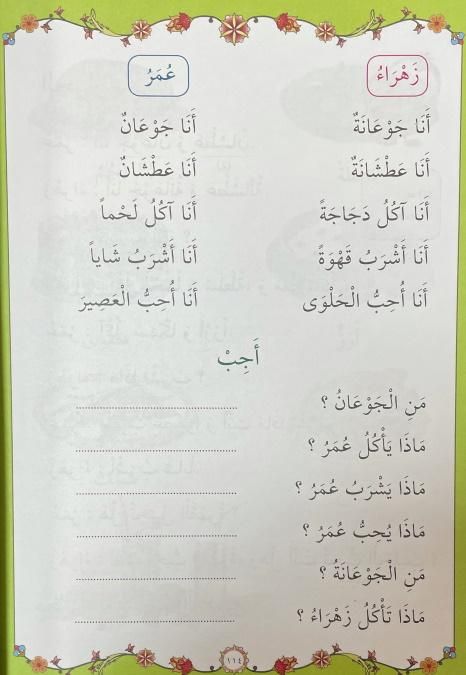 زَهْرَاءُ عُمَرُ
أَنَا جَوْعَانَةٌ أَنَا جَوْعَانٌ
أَنَا عَطْشَانَةٌ أَنَا عَطْشَانٌ
أَنَا آكُلُ دَجَاجَةً أَنَا آكُلُ لَحْماً
أَنَا أَشْرَبُ قَهْوَةً أَنَا أَشْرَبُ شَاياً
أَنَا أُحِبُّ الْحَلْوَى أَنَا أُحِبُّ الْعَصِيرَ
أَجِبْ
مَنِ الْجَوْعَانُ ؟ ........................................
مَاذَا يَأْكُلُ عُمَرُ ؟ ........................................
مَاذَا يَشْرَبُ عُمَرُ ؟ ........................................
مَاذَا يُحِبُّ عُمَرُ ؟ ........................................
مَنِ الْجَوْعَانَةُ ؟ ........................................
مَاذَا تَأْكُلُ زَهْرَاءُ ؟ ........................................
١١٤